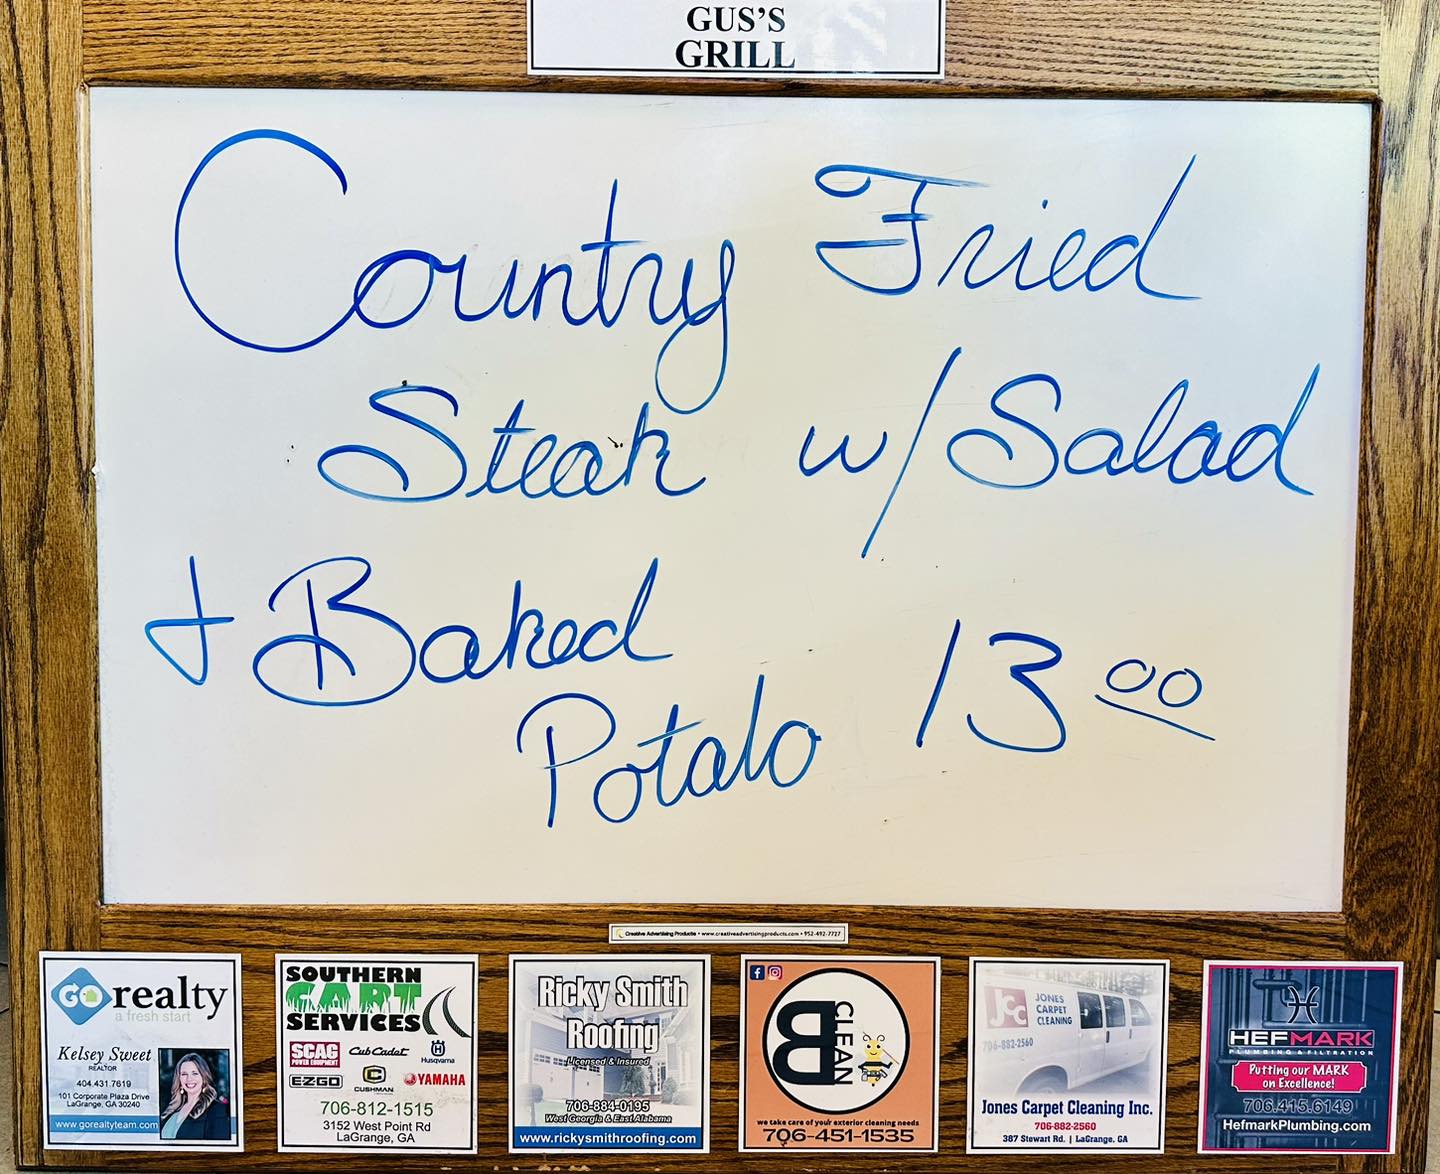 GUS'S
GRILL
Country Fried
Steak w/Salad
+ Baked
Potato 13 00
Creative Advertising Products • www.creativeadvertisingproducts.com • 952-492-7727
GO realty
a fresh start
Kelsey Sweet
REALTOR
404.431.7619
101 Corporate Plaza Drive
LaGrange, GA 30240
www.gorealtyteam.com
SOUTHERN
CART
SERVICES
SCAG
POWER EQUIPMENT
Cub Cadet
Husqvarna
EZGO
CUSHMAN
YAMAHA
706-812-1515
3152 West Point Rd
LaGrange, GA
Ricky Smith
Roofing
Licensed & Insured
706-884-0195
West Georgia & East Alabama
www.rickysmithroofing.com
BB
CLEAN
we take care of your exterior cleaning needs
706-451-1535
JCC
JONES
CARPET
CLEANING
706-882-2560
Jones Carpet Cleaning Inc.
706-882-2560
387 Stewart Rd. | LaGrange, GA
HEFMARK
PLUMBING & FILTRATION
Putting our MARK
on Excellence!
706.415.6149
HefmarkPlumbing.com